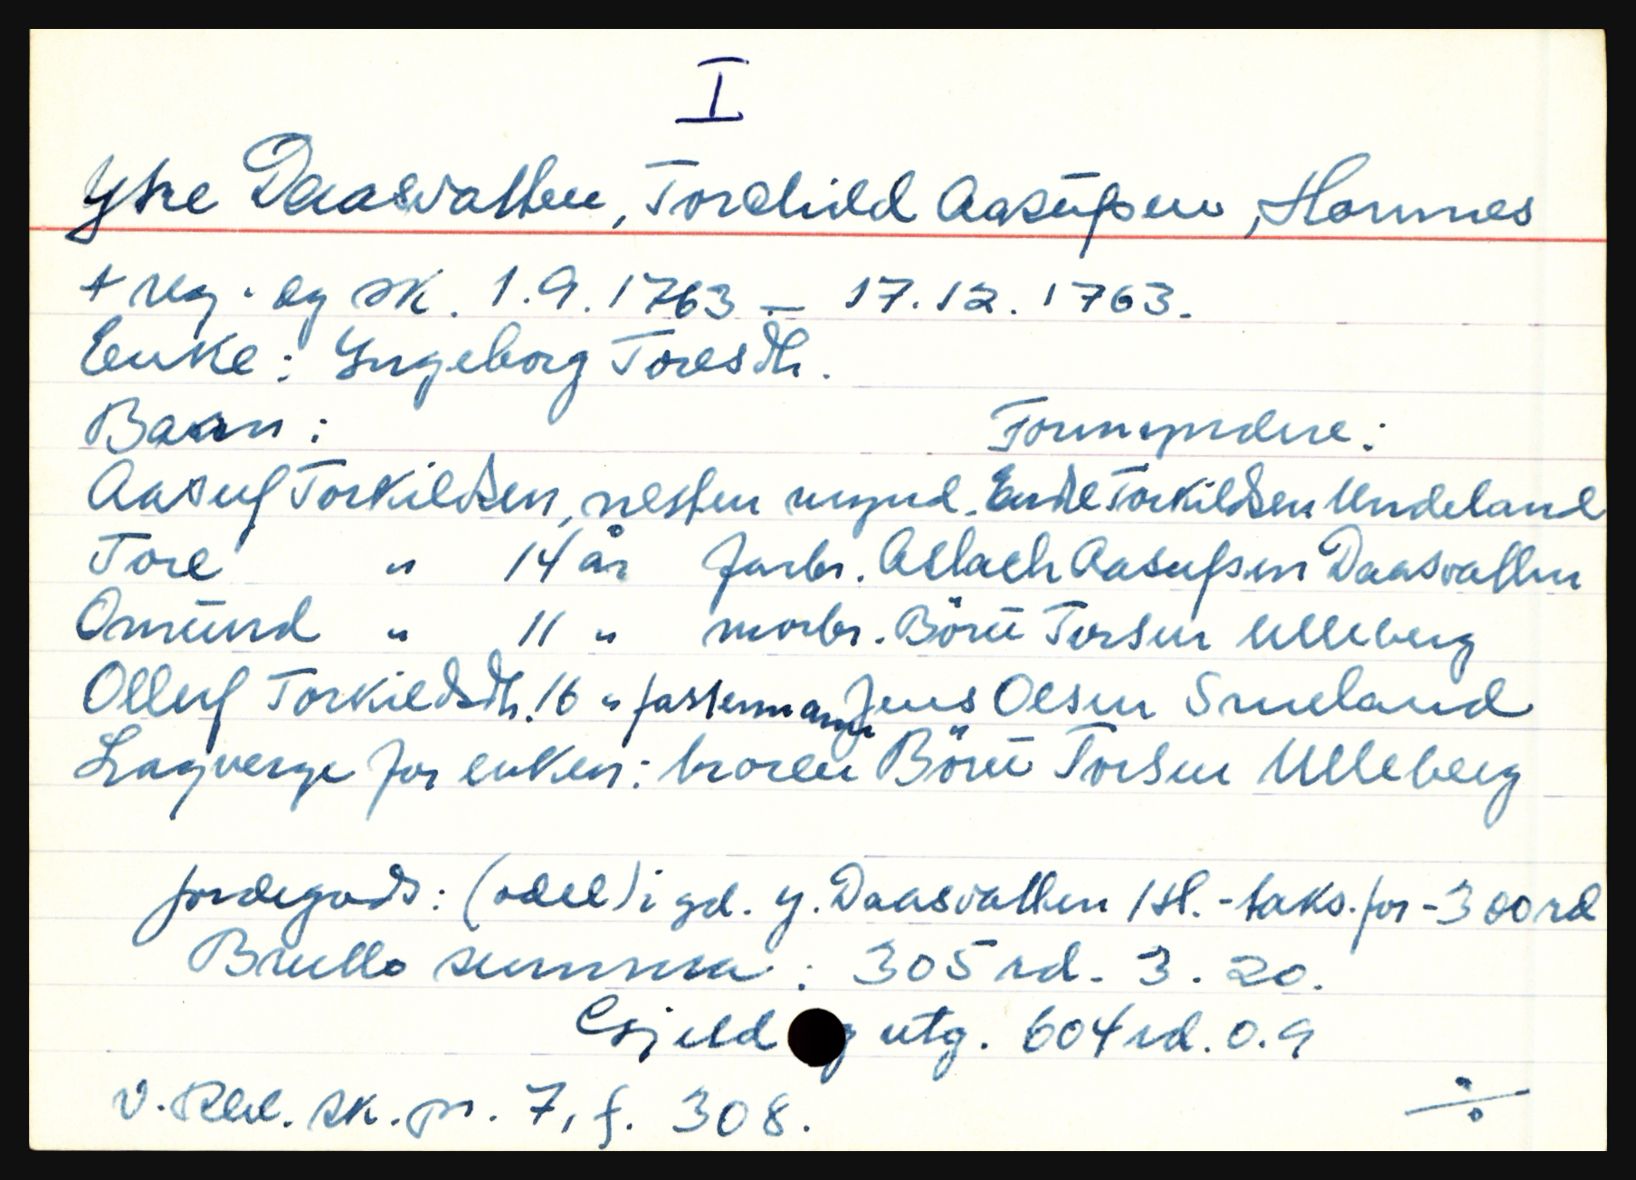 I
Ytre Daasvatten, Torchild Aasufsen, Hornnes
+ reg. og sk. 1.9.1763 – 17.12.1763.
Enke: Yngeborg Toresdtr.
Baarn: Formyndere:
Aasuf Torkildsen, nesten mynd. Torkildsen Undeland
Tore " 14 år farbr. Aslach Aasufsen Daasvatten
Omund " 11 " morbr. Böru Torsen Ulleberg
Olluf Torkildsdtr. 16 " festermann Jens Olsen Smeland
Lagverge for enken: broren Böru Torsen Ulleberg
jordegods: (odel) i gd. y. Daasvatten 1 hl. - taks. for - 300 rd
Brutto summa: 305 rd. 3. 20.
Gjeld og utg. 604 rd. 0. 9
V. Rbl. sk. pr. 7, f. 308.
./.